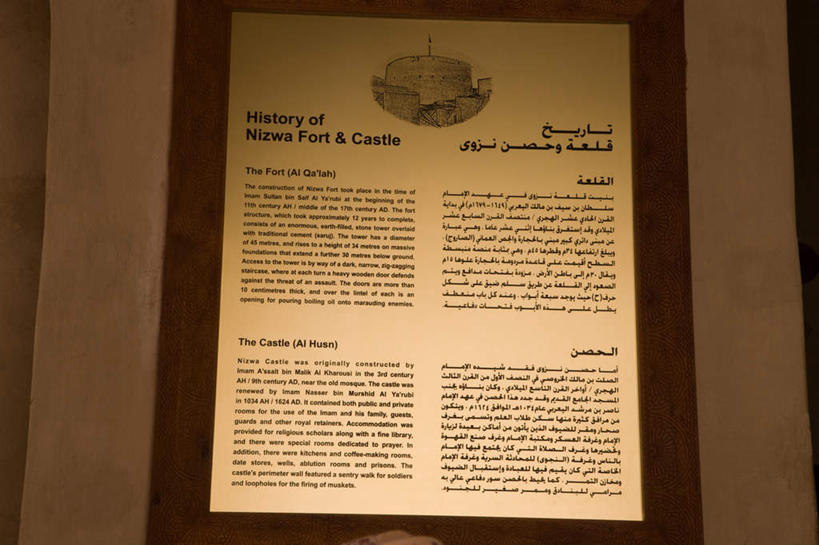 History of
Nizwa Fort & Castle
The Fort (Al Qa'lah)
The construction of Nizwa Fort took place in the time of
Imam Sultan bin Saif Al Ya'rubi at the beginning of the
11th century AH / middle of the 17th century AD. The fort
structure, which took approximately 12 years to complete,
consists of an enormous, earth-filled, stone tower overlaid
with traditional cement (saruj). The tower has a diameter
of 45 metres, and rises to a height of 34 metres on massive
foundations that extend a further 30 metres below ground.
Access to the tower is by way of a dark, narrow, zig-zagging
staircase, where at each turn a heavy wooden door defends
against the threat of an assault. The doors are more than
10 centimetres thick, and over the lintel of each is an
opening for pouring boiling oil onto marauding enemies.
The Castle (Al Husn)
Nizwa Castle was originally constructed by
Imam A'ssalt bin Malik Al Kharousi in the 3rd century
AH / 9th century AD, near the old mosque. The castle was
renewed by Imam Nasser bin Murshid Al Ya'rubi
in 1034 AH / 1624 AD. It contained both public and private
rooms for the use of the Imam and his family, guests,
guards and other royal retainers. Accommodation was
provided for religious scholars along with a fine library,
and there were special rooms dedicated to prayer. In
addition, there were kitchens and coffee-making rooms,
date stores, wells, ablution rooms and prisons. The
castle's perimeter wall featured a sentry walk for soldiers
and loopholes for the firing of muskets.
تاريخ
قلعة وحصن نزوى
القلعة
بنيت قلعة نزوى في عهد الإمام
سلطان بن سيف بن مالك اليعربي (١٦٤٩-١٦٧٩م) في بداية
القرن الحادي عشر الهجري / منتصف القرن السابع عشر
الميلادي وقد إستغرق بناؤها إثني عشر عاما . وهي عبارة
عن مبنى دائري كبير مبني بالحجارة والجص العماني (الصاروج) .
ويبلغ ارتفاعها ٣٤م وقطرها ٤٥م . وهي بثابة منصة منبسطة
السطح أقيمت على قاعدة مردومة بالحجارة علوها ١٥م
ويقال ٣٠م إلى باطن الأرض . مزودة بفتحات مدافع ويتم
الصعود إلى القلعة عن طريق سلم ضيق على شكل
حرف(ح) حيث يوجد سبعة أبواب . وعند كل باب منعطف
يطل على هذه الأبوب فتحات دفاعية.
الحصن
أما حصن نزوى فقد شيده الإمام
الصلت بن مالك الخروصي في النصف الأول من القرن الثالث
الهجري / أواخر القرن التاسع الميلادي . وكان بناؤه بجنب
المسجد الجامع القديم وقد جدد هذا الحصن في عهد الإمام
ناصر بن مرشد اليعربي عام ١٠٣٤هـ الموافق ١٦٢٤م . ويتكون
من مرافق كثيرة منها سكن طلاب العلم وتسمى بغرف
صنحار ومقر للضيوف الذين يأتون من أماكن بعيدة لزيارة
الإمام وغرفة العسكر ومكتبة الإمام وغرف صنع القهوة
وتحضيرها وغرف الصلاة التي كان يجتمع فيها الإمام
بالناس وغرفة (النجوى) للمحادثة السرية وغرفة الإمام
الخاصة التي كان يقيم فيها للعبادة وإستقبال الضيوف
ومخازن التمر . كما يحيط بالحصن سور دفاعي عالي به
مرامي للبنادق وممر صغير للجنود.